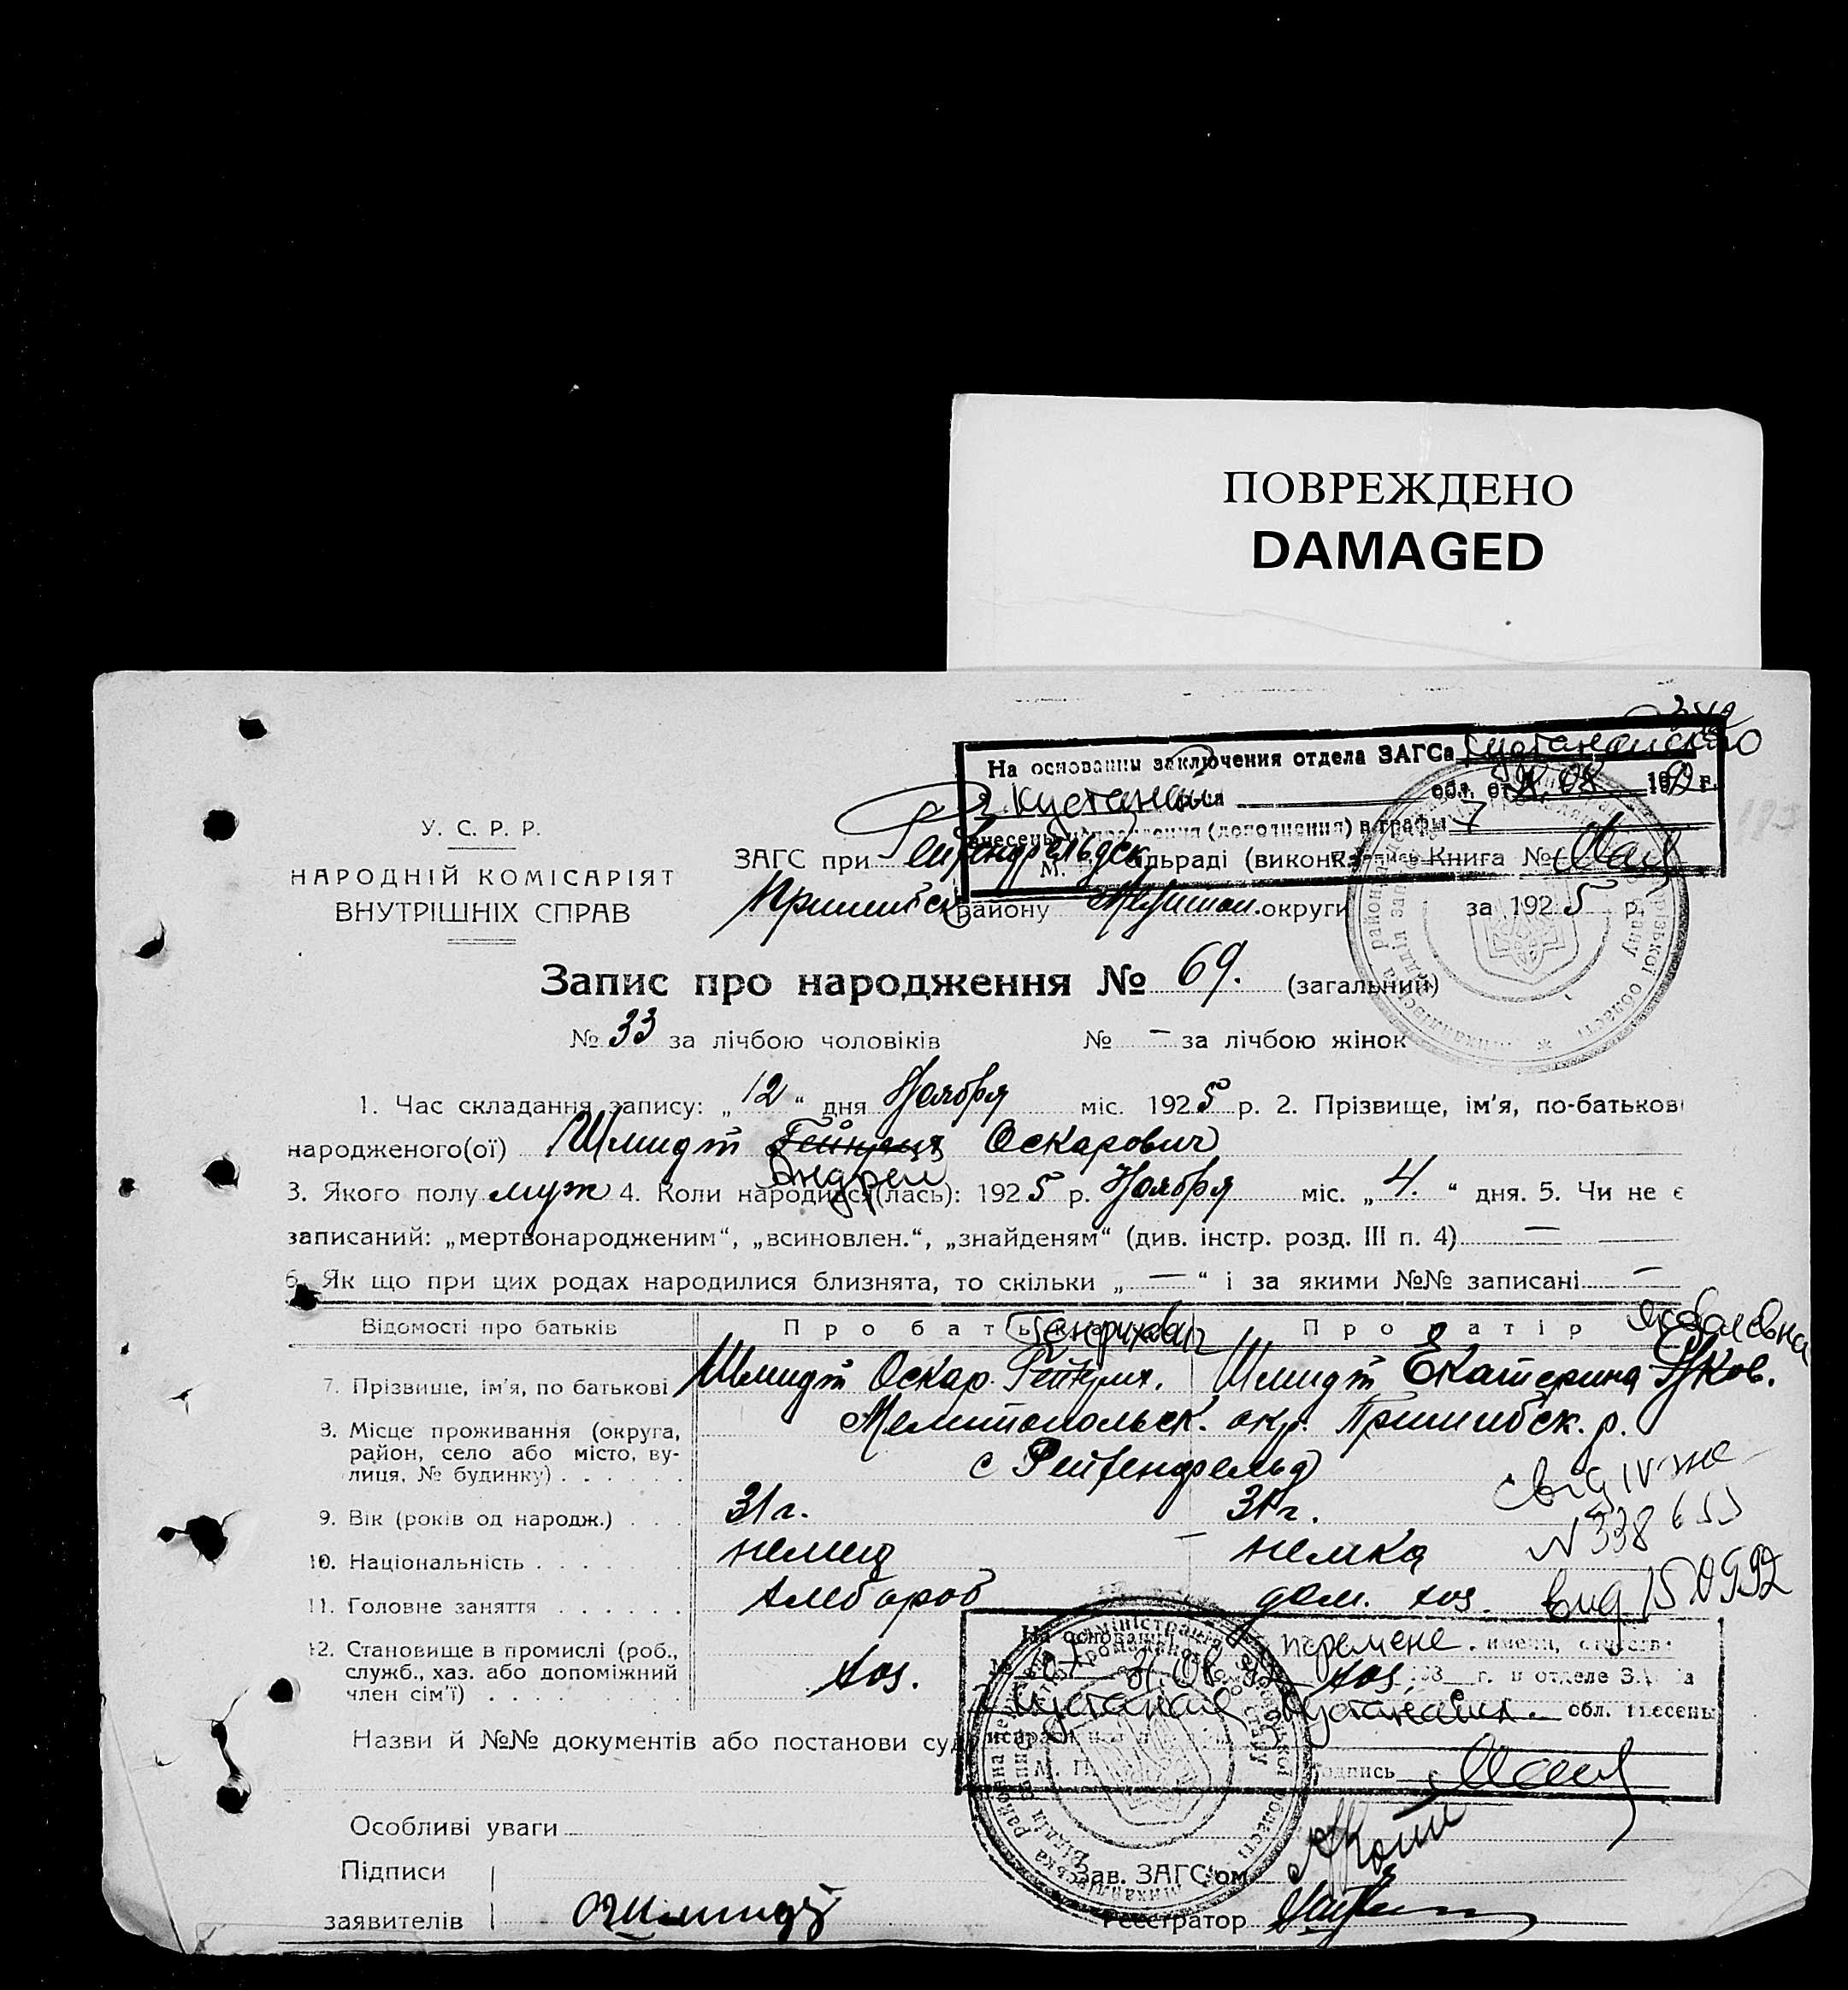 ПОВРЕЖДЕНО
DAMAGED
На основании заключения отдела ЗАГСа Кустанайского
г. Кустанай обл. от 192 г.
внесены исправления (дополнения) в графы 7
М. Подпись
У. С. Р. Р.
НАРОДНІЙ КОМІСАРІЯТ
ВНУТРІШНІХ СПРАВ
ЗАГС при Рейхенфельдск. сільраді (виконк. Книга №
Пришибск району Мелитоп. округи за 1925 р.
Запис про народження № 69. (загальний)
№ 33 за лічбою чоловіків № — за лічбою жінок
1. Час складання запису: „12“ дня Ноября міс. 1925 р. 2. Прізвище, ім'я, по-батькові
народженого(ої) Шмидт Гейнрих Оскарович
Андрей
3. Якого полу муж 4. Коли народився(лась): 1925 р. Ноября міс. „4.“ дня. 5. Чи не є
записаний: „мертвонародженим“, „всиновлен.“, „знайденям“ (див. інстр. розд. III п. 4) —
6. Як що при цих родах народилися близнята, то скільки „—“ і за якими №№ записані —
Відомості про батьків Про батька Про матір
Генрихович Яковлевна
7. Прізвише, ім'я, по батькові Шмидт Оскар Гейнрих. Шмидт Екатерина Яков.
8. Місце проживання (округа, Мелитопольск. окр. Пришибск. р.
район, село або місто, ву-
лиця, № будинку) с Рейхенфельд
9. Вік (років од народж.) 31 г. 31 г.
10. Національність немец — немка
11. Головне заняття хлебороб дом. хоз.
12. Становище в промислі (роб.,
служб., хаз. або допоміжний
член сім'ї) хоз. хоз.
свід IV-жс
N 338655
вид 150992
На основании перемене имени, отчеств
31.08.92 198 г. в отделе ЗАГСа
г. Кустаная Кустанайск. обл. внесены
исправления
М. П. Подпись
Назви й №№ документів або постанови суду
Особливі уваги
Підписи
заявителів ОШмидт
Зав. ЗАГС'ом
Реєстратор